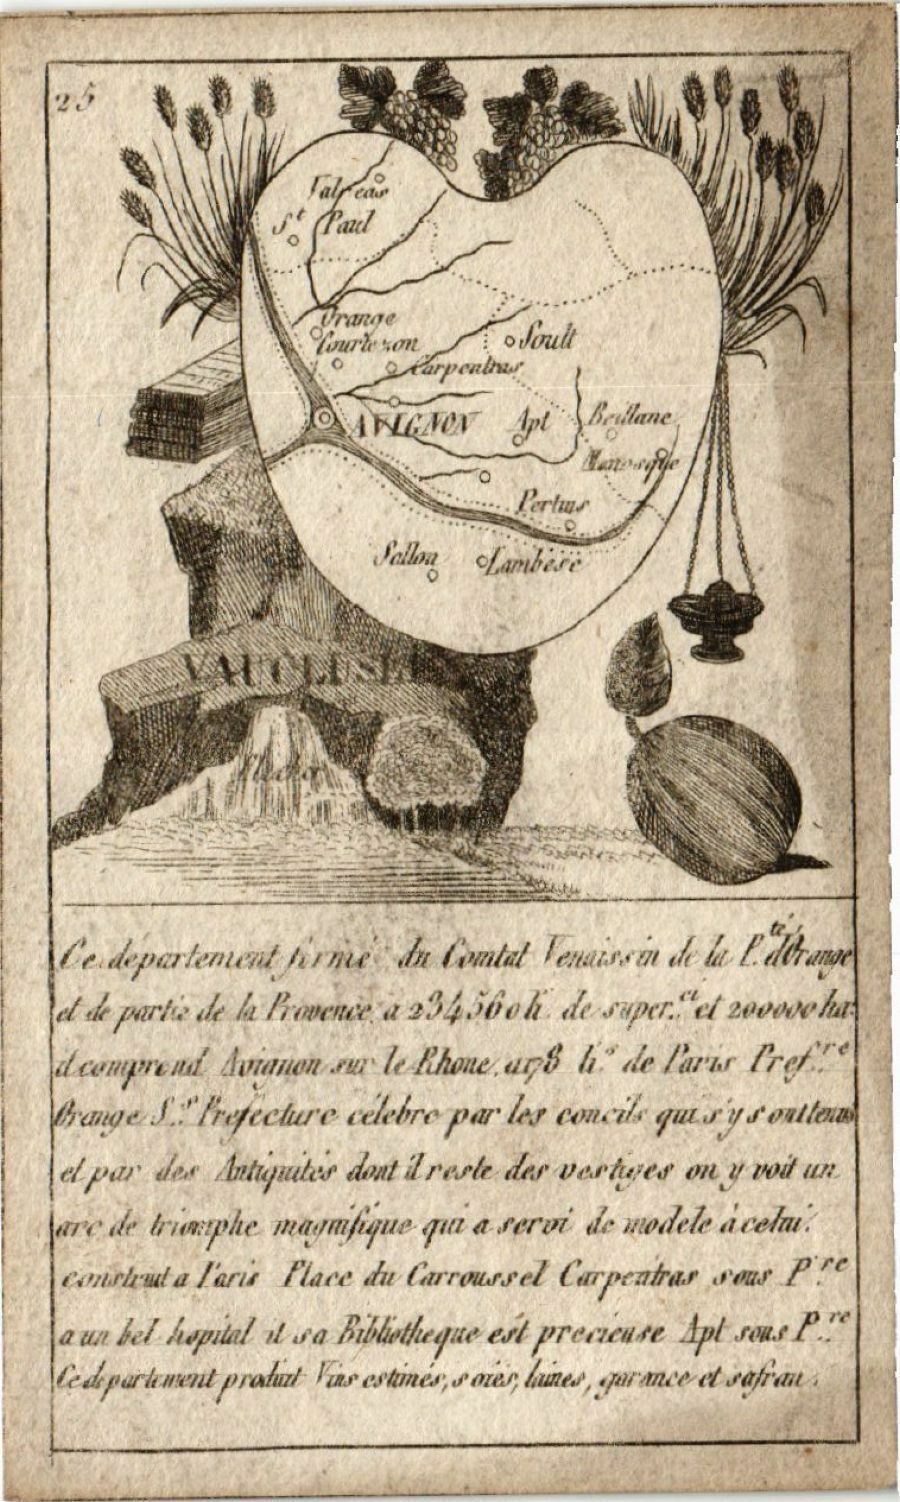 25
Valreas
St Paul
Orange
Courtezon
Soult
Carpentras
AVIGNON
Apt
Beillane
Manosque
Pertuis
Sallon
Lambese
VAUCLUSE
Ce département formé du Comtat Venaissin de la P.té d'Orange
et de partie de la Provence a 234560 h. de super.cie et 200000 ha.
il comprend Avignon sur le Rhone, a 178 li.s de Paris Pref.re
Orange S.s Prefecture célebre par les concils qui s'y sont tenus
et par des Antiquités dont il reste des vestiges on y voit un
arc de triomphe magnifique qui a servi de modele à celui
construit a Paris Place du Carroussel Carpentras sous P.re
a un bel hopital et sa Bibliotheque est precieuse Apt sous P.re
Ce departement produit Vins estimés, soies, laines, garance et safran.